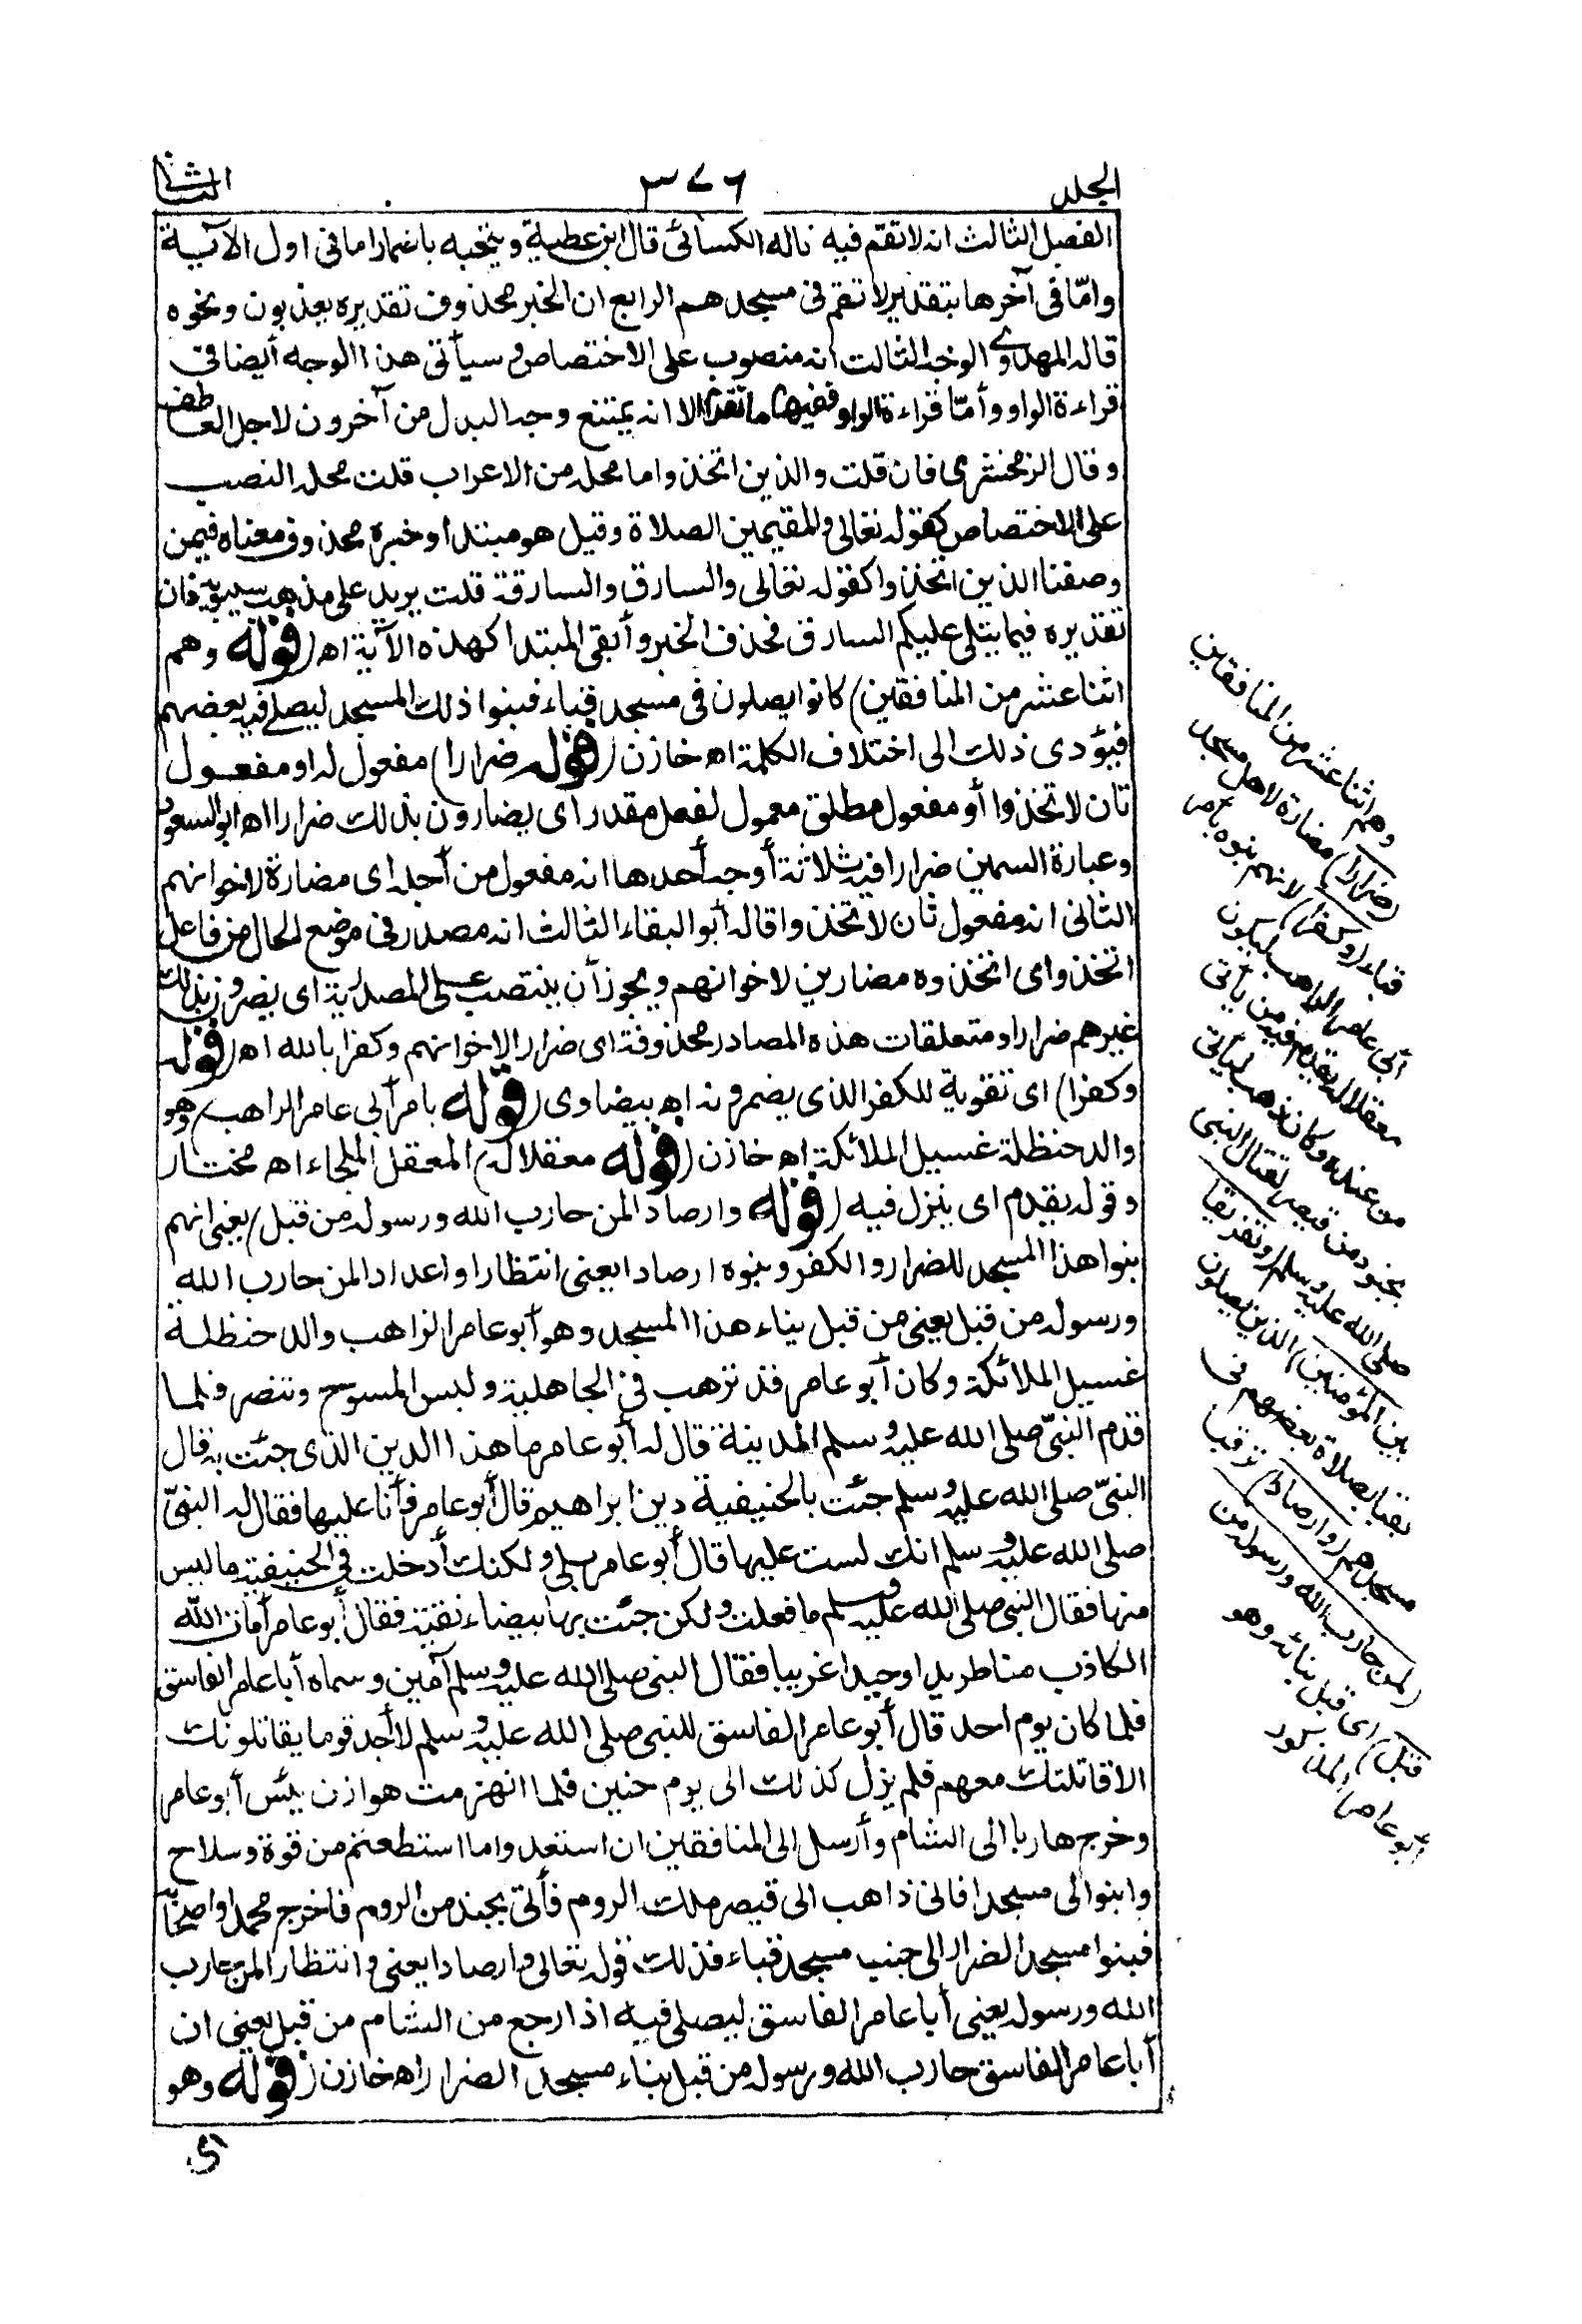 الجلد
٣٧٦
الثانى
الفصل الثالث انه لا تقم فيه قاله الكسائى قال ابن عطية ويتجه باضمار اما فى اول الآية
وامّا فى آخرها بتقدير لا تقم فى مسجدهم الرابع ان الخبر محذوف تقديره يعذبون ونحوه
قاله المهدوى الوجه الثالث انه منصوب على الاختصاص وسيأتى هذا الوجه أيضا فى
قراءة الواو وأمّا قراءة الواو ففيها ما تقدم الا انه يمتنع وجه البدل من آخرون لاجل العاطف
وقال الزمخشرى فان قلت والذين اتخذوا ما محله من الاعراب قلت محله النصب
على الاختصاص كقوله تعالى والمقيمين الصلاة وقيل هو مبتدأ وخبره محذوف معناه فيمن
وصفنا الذين اتخذوا كقوله تعالى والسارق والسارقة قلت يريد على مذهب سيبويه فان
تقديره فيما يتلى عليكم السارق فحذف الخبر وأبقى المبتدا كهذه الآية اه (قوله وهم
اثنا عشر من المنافقين) كانوا يصلون فى مسجد قباء فبنوا ذلك المسجد ليصلى فيه بعضهم
فيؤدى ذلك الى اختلاف الكلمة اه خازن (قوله ضرارا) مفعول له او مفعول
ثان لاتخذوا أو مفعول مطلق معمول لفعل مقدر اى يضارون بذلك ضرارا اه ابو السعود
وعبارة السمين ضرارا فيه ثلاثة أوجه أحدها انه مفعول من أجله اى مضارة لاخوانهم
الثانى انه مفعول ثان لاتخذوا قاله أبو البقاء الثالث انه مصدر فى موضع الحال من فاعل
اتخذوا اى اتخذوه مضارين لاخوانهم ويجوز أن ينتصب على المصدرية اى يضرون بذلك
غيرهم ضرارا ومتعلقات هذه المصادر محذوفة اى ضرارا لاخوانهم وكفرا بالله اه (قوله
وكفرا) اى تقوية للكفر الذى يضمرونه اه بيضاوى (قوله بامر أبى عامر الراهب) وهو
والد حنظلة غسيل الملائكة اه خازن (قوله معقلا له) المعقل الملجاء اه مختار
وقوله يقدم اى ينزل فيه (قوله وارصادا لمن حارب الله ورسوله من قبل) يعنى انهم
بنوا هذا المسجد للضرار والكفر وبنوه ارصادا يعنى انتظارا واعدادا لمن حارب الله
ورسوله من قبل يعنى من قبل بناء هذا المسجد وهو أبو عامر الراهب والد حنظلة
غسيل الملائكة وكان أبو عامر قد ترهب فى الجاهلية ولبس المسوح وتنصر فلما
قدم النبىّ صلى الله عليه وسلم المدينة قال له أبو عامر ما هذا الدين الذى جئت به قال
النبىّ صلى الله عليه وسلم جئت بالحنيفية دين ابراهيم قال أبو عامر فأنا عليها فقال له النبىّ
صلى الله عليه وسلم انك لست عليها قال أبو عامر بلى ولكنك أدخلت فى الحنيفية ما ليس
منها فقال النبى صلى الله عليه وسلم ما فعلت ولكن جئت بها بيضاء نقية فقال أبو عامر أمات الله
الكاذب منا طريدا وحيدا غريبا فقال النبى صلى الله عليه وسلم آمين وسماه أبا عامر الفاسق
فلما كان يوم احد قال أبو عامر الفاسق للنبى صلى الله عليه وسلم لا أجد قوما يقاتلونك
الا قاتلتك معهم فلم يزل كذلك الى يوم حنين فلما انهزمت هوازن يئس أبو عامر
وخرج هاربا الى الشام وأرسل الى المنافقين ان استعدوا ما استطعتم من قوة وسلاح
وابنوا لى مسجدا فانى ذاهب الى قيصر ملك الروم فأتى بجند من الروم فاخرج محمدا واصحابه
فبنوا مسجد الضرار الى جنب مسجد قباء فذلك قوله تعالى وارصادا يعنى وانتظارا لمن حارب
الله ورسوله يعنى أبا عامر الفاسق ليصلى فيه اذا رجع من الشام من قبل يعنى ان
أبا عامر الفاسق حارب الله ورسوله من قبل بناء مسجد الضرار اه خازن (قوله وهو
وهم اثنا عشر من المنافقين
(ضرارا) مضارة لاهل مسجد
قباء (وكفرا) لانهم بنوه بأمر
أبى عامر الراهب ليكون
معقلا له يقدم فيه من يأتى
من عنده وكان ذهب ليأتى
بجنود من قيصر لقتال النبى
صلى الله عليه وسلم (وتفريقا
بين المؤمنين) الذين يصلون
بقبا بصلاة بعضهم فى
مسجدهم (وارصادا) ترقبا
(لمن حارب الله ورسوله من
قبل) اى قبل بنائه وهو
أبو عامر المذكور